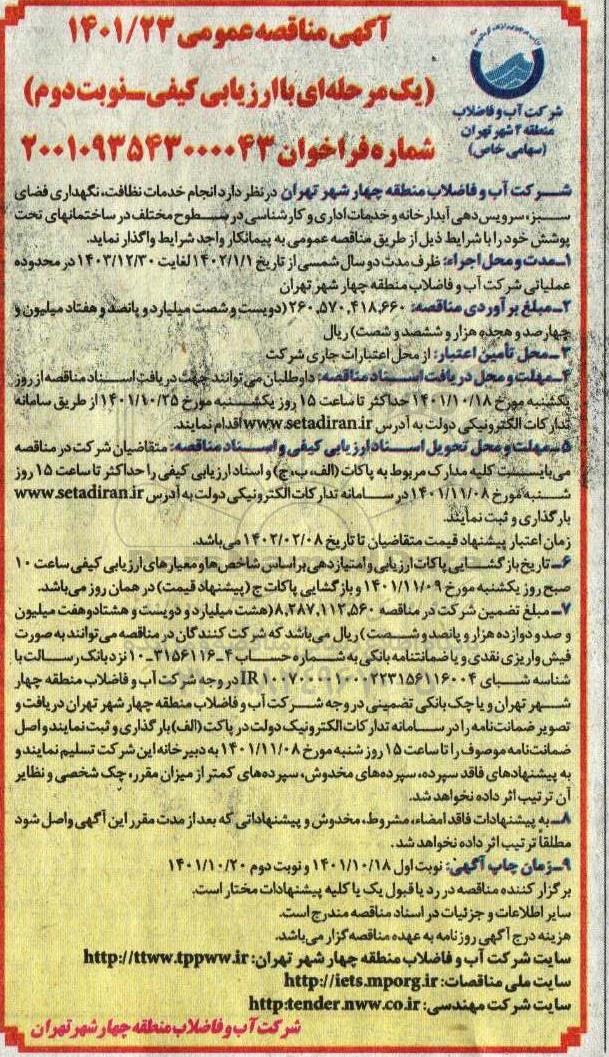 آگهی مناقصه عمومی ۱۴۰۱/۲۳
(یک مرحله‌ای با ارزیابی کیفی ـ نوبت دوم)
شماره فراخوان ۲۰۰۱۰۹۳۵۴۳۰۰۰۰۴۳
شرکت آب و فاضلاب
منطقه ۴ شهر تهران
(سهامی خاص)
شرکت آب و فاضلاب منطقه چهار شهر تهران در نظر دارد انجام خدمات نظافت، نگهداری فضای
سبز، سرویس‌دهی آبدارخانه و خدمات اداری و کارشناسی در سطوح مختلف در ساختمانهای تحت
پوشش خود را با شرایط ذیل از طریق مناقصه عمومی به پیمانکار واجد شرایط واگذار نماید.
۱ـ مدت و محل اجراء: ظرف مدت دو سال شمسی از تاریخ ۱۴۰۲/۱/۱ لغایت ۱۴۰۳/۱۲/۳۰ در محدوده
عملیاتی شرکت آب و فاضلاب منطقه چهار شهر تهران
۲ـ مبلغ برآوردی مناقصه: ۲۶۰،۵۷۰،۴۱۸،۶۶۰ (دویست و شصت میلیارد و پانصد و هفتاد میلیون و
چهارصد و هجده هزار و ششصد و شصت) ریال
۳ـ محل تأمین اعتبار: از محل اعتبارات جاری شرکت
۴ـ مهلت و محل دریافت اسناد مناقصه: داوطلبان می‌توانند جهت دریافت اسناد مناقصه از روز
یکشنبه مورخ ۱۴۰۱/۱۰/۱۸ حداکثر تا ساعت ۱۵ روز یکشنبه مورخ ۱۴۰۱/۱۰/۲۵ از طریق سامانه
تدارکات الکترونیکی دولت به آدرس www.setadiran.ir اقدام نمایند.
۵ـ مهلت و محل تحویل اسناد ارزیابی کیفی و اسناد مناقصه: متقاضیان شرکت در مناقصه
می‌بایست کلیه مدارک مربوط به پاکات (الف، ب، ج) و اسناد ارزیابی کیفی را حداکثر تا ساعت ۱۵ روز
شنبه مورخ ۱۴۰۱/۱۱/۰۸ در سامانه تدارکات الکترونیکی دولت به آدرس www.setadiran.ir
بارگذاری و ثبت نمایند.
زمان اعتبار پیشنهاد قیمت متقاضیان تا تاریخ ۱۴۰۲/۰۲/۰۸ می‌باشد.
۶ـ تاریخ بازگشایی پاکات ارزیابی و امتیازدهی براساس شاخص‌ها و معیارهای ارزیابی کیفی ساعت ۱۰
صبح روز یکشنبه مورخ ۱۴۰۱/۱۱/۰۹ و بازگشایی پاکات ج (پیشنهاد قیمت) در همان روز می‌باشد.
۷ـ مبلغ تضمین شرکت در مناقصه ۸،۲۸۷،۱۱۲،۵۶۰ (هشت میلیارد و دویست و هشتاد و هفت میلیون
و صد و دوازده هزار و پانصد و شصت) ریال می‌باشد که شرکت کنندگان در مناقصه می‌توانند به صورت
فیش واریزی نقدی و یا ضمانتنامه بانکی به شماره حساب ۴ـ۳۱۵۶۱۱۶ـ۱۰ نزد بانک رسالت با
شناسه شبای در وجه شرکت آب و فاضلاب منطقه چهار
شهر تهران و یا چک بانکی تضمینی در وجه شرکت آب و فاضلاب منطقه چهار شهر تهران دریافت و
تصویر ضمانت‌نامه را در سامانه تدارکات الکترونیک دولت در پاکت (الف) بارگذاری و ثبت نمایند و اصل
ضمانت‌نامه موصوف را تا ساعت ۱۵ روز شنبه مورخ ۱۴۰۱/۱۱/۰۸ به دبیرخانه این شرکت تسلیم نمایند و
به پیشنهادهای فاقد سپرده، سپرده‌های مخدوش، سپرده‌های کمتر از میزان مقرر، چک شخصی و نظایر
آن ترتیب اثر داده نخواهد شد.
۸ـ به پیشنهادات فاقد امضاء، مشروط، مخدوش و پیشنهاداتی که بعد از مدت مقرر این آگهی واصل شود
مطلقاً ترتیب اثر داده نخواهد شد.
۹ـ زمان چاپ آگهی: نوبت اول ۱۴۰۱/۱۰/۱۸ و نوبت دوم ۱۴۰۱/۱۰/۲۰
برگزار کننده مناقصه در رد یا قبول یک یا کلیه پیشنهادات مختار است.
سایر اطلاعات و جزئیات در اسناد مناقصه مندرج است.
هزینه درج آگهی روزنامه به عهده مناقصه‌گزار می‌باشد.
سایت شرکت آب و فاضلاب منطقه چهار شهر تهران: http://ttww.tppww.ir
سایت ملی مناقصات: http://iets.mporg.ir
سایت شرکت مهندسی: http:tender.nww.co.ir
شرکت آب و فاضلاب منطقه چهار شهر تهران